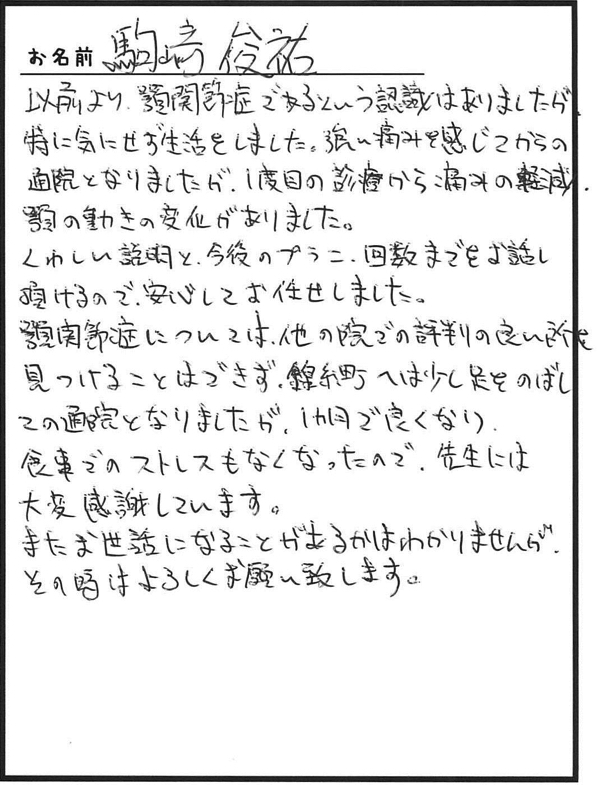 お名前 駒崎 俊祐
以前より、顎関節症であるという認識はありましたが、
特に気にせず生活をしました。強い痛みを感じてからの
通院となりましたが、1度目の診療から痛みの軽減、
顎の動きの変化がありました。
くわしい説明と、今後のプラン、回数までをお話し
頂けるので、安心してお任せしました。
顎関節症については、他の院での評判の良い所を
見つけることはできず、錦糸町へは少し足をのばし
ての通院となりましたが、1カ月で良くなり、
食事でのストレスもなくなったので、先生には
大変感謝しています。
またお世話になることがあるかはわかりませんが、
その時はよろしくお願い致します。